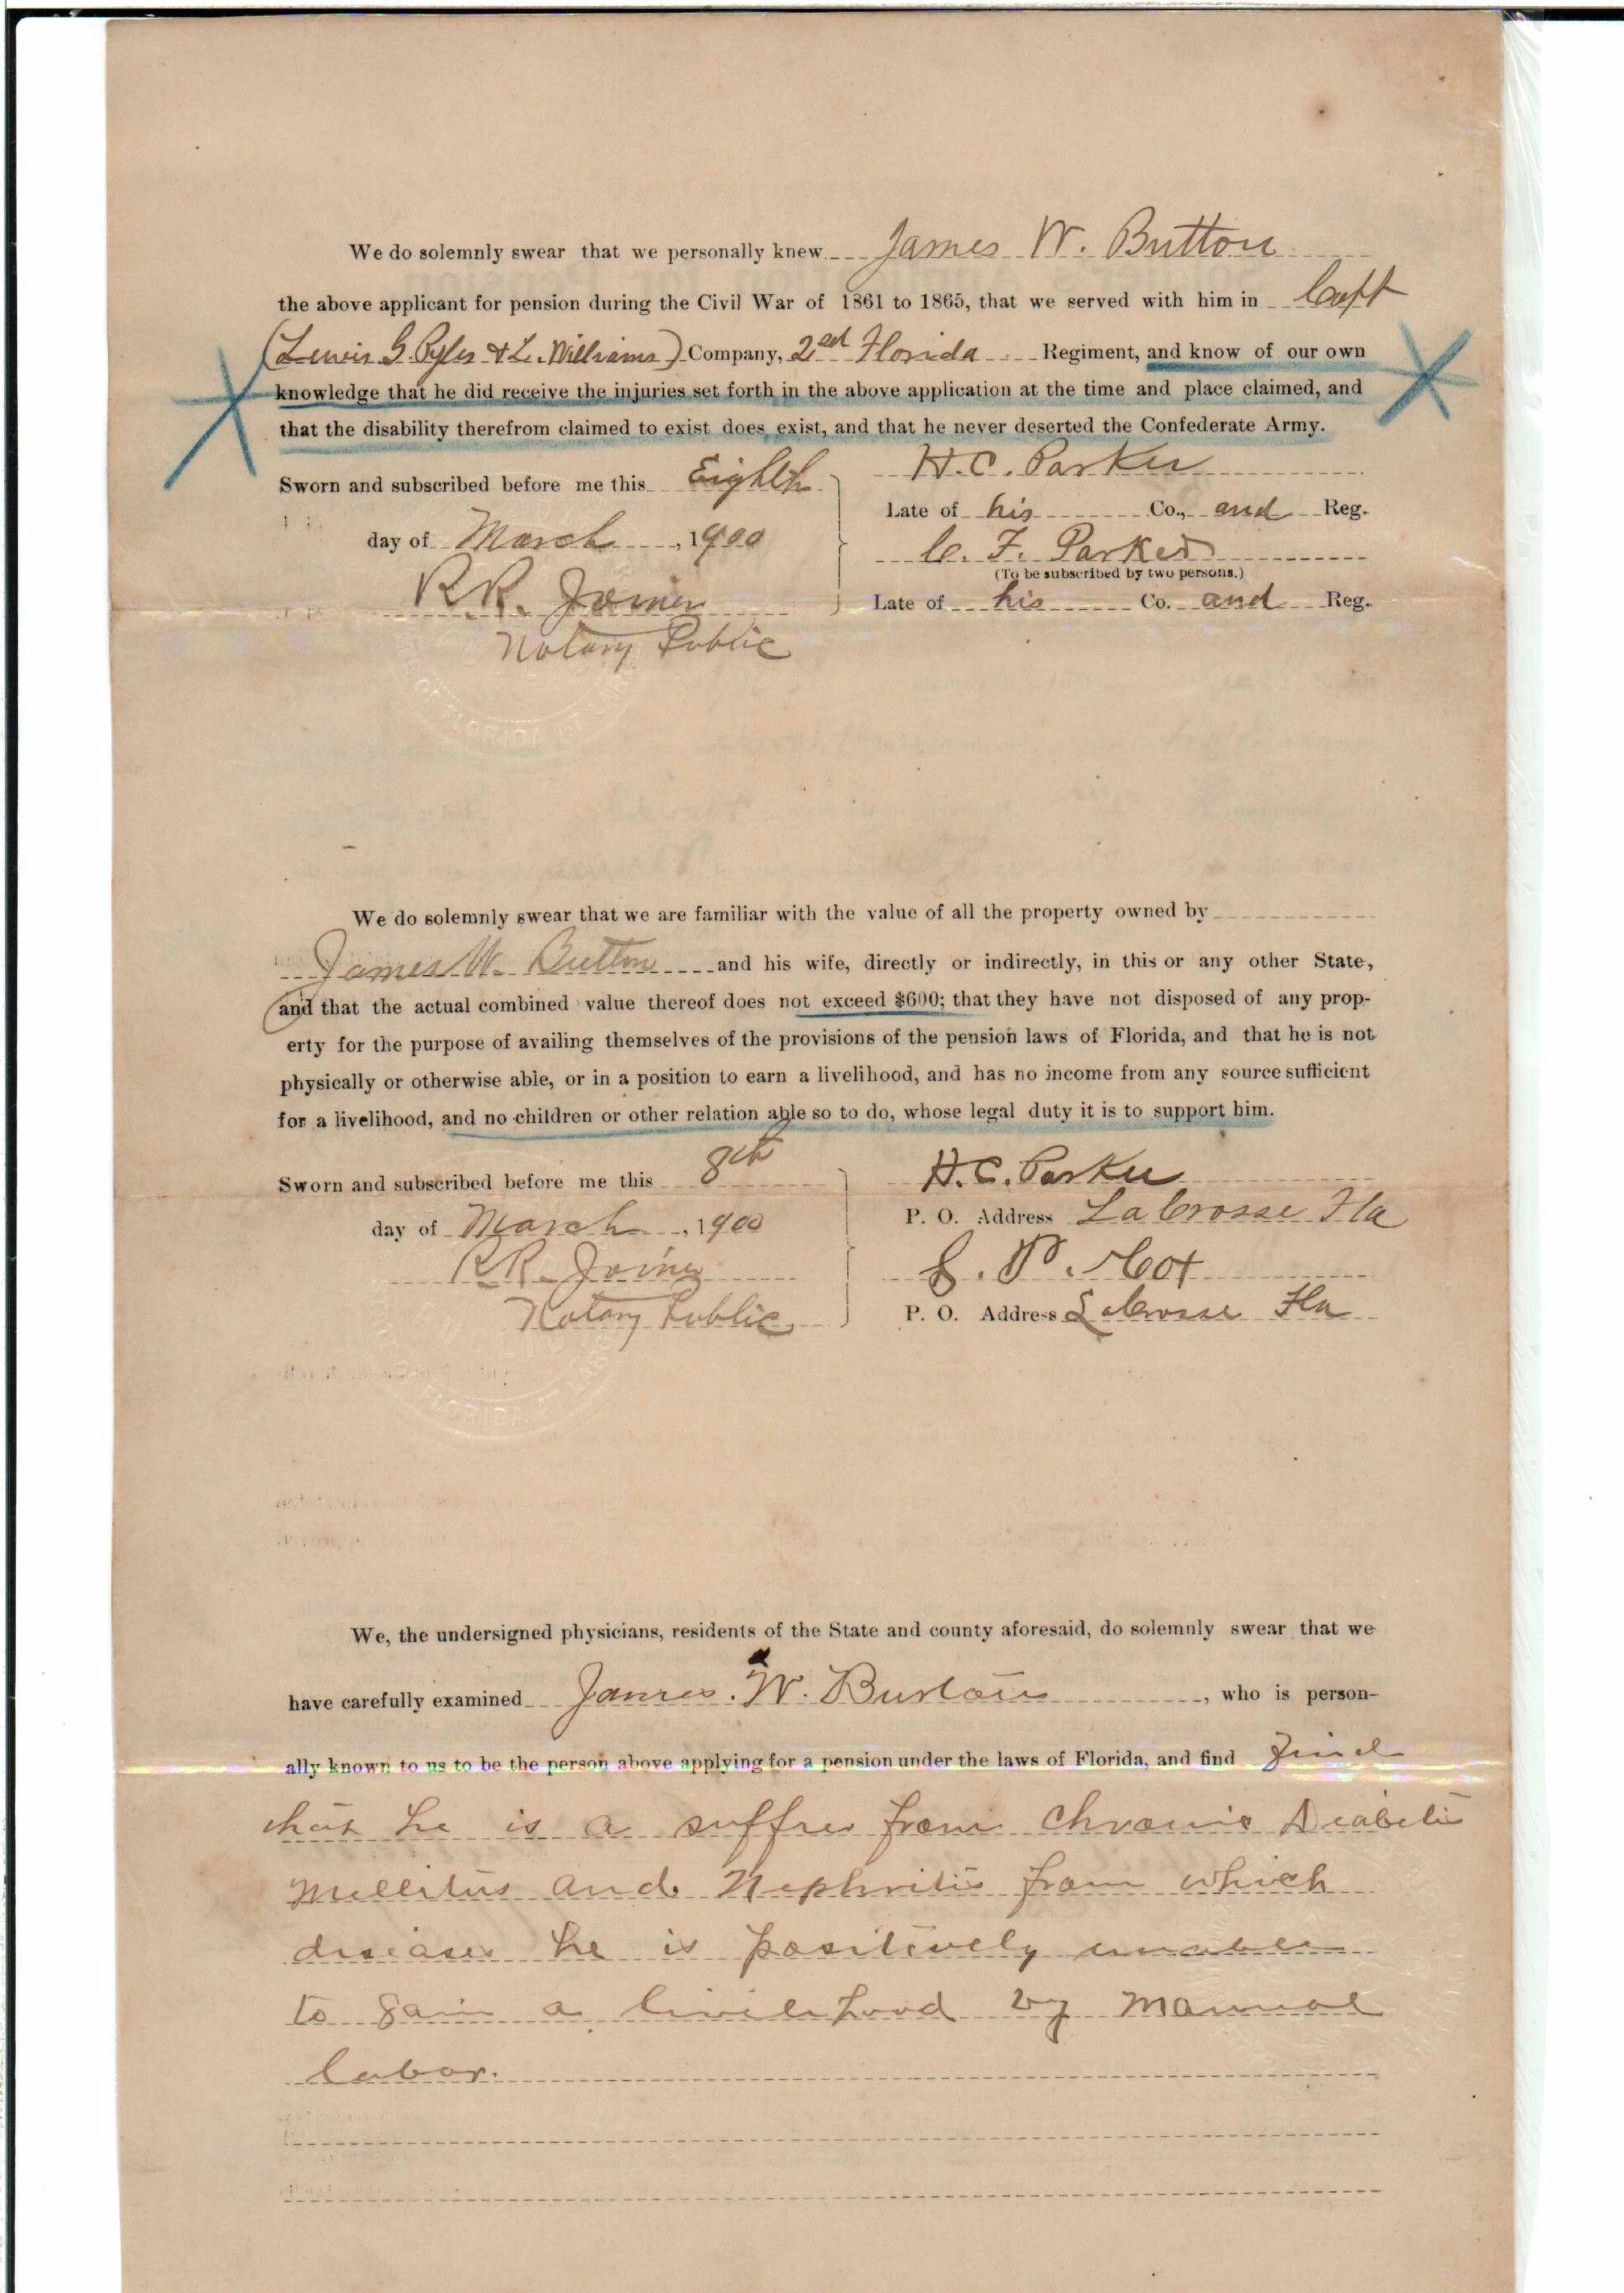 We do solemnly swear that we personally knew James W. Button
the above applicant for pension during the Civil War of 1861 to 1865, that we served with him in Capt
(Lewis G. Pyles & L. Williams) Company, 2ed Florida Regiment, and know of our own
knowledge that he did receive the injuries set forth in the above application at the time and place claimed, and
that the disability therefrom claimed to exist does exist, and that he never deserted the Confederate Army.
Sworn and subscribed before me this Eighth
day of March, 1900
R.R. Joiner
Notary Public
H.C. Parker
Late of his Co., and Reg.
C. F. Parker
(To be subscribed by two persons.)
Late of his Co. and Reg.
OF FLORIDA
We do solemnly swear that we are familiar with the value of all the property owned by
James W. Button and his wife, directly or indirectly, in this or any other State,
and that the actual combined value thereof does not exceed $600; that they have not disposed of any prop-
erty for the purpose of availing themselves of the provisions of the pension laws of Florida, and that he is not
physically or otherwise able, or in a position to earn a livelihood, and has no income from any source sufficient
for a livelihood, and no children or other relation able so to do, whose legal duty it is to support him.
Sworn and subscribed before me this 8th
day of March, 1900
R.R. Joiner
Notary Public
H.C. Parker
P. O. Address LaCrosse Fla
P. Cox
P. O. Address LaCrosse Fla
FLORIDA
We, the undersigned physicians, residents of the State and county aforesaid, do solemnly swear that we
have carefully examined James W. Burton, who is person-
ally known to us to be the person above applying for a pension under the laws of Florida, and find find
that he is a suffrer from Chronic Diabetis
Mellitus and Nephritis from which
diseases he is positively unable
to gain a livelihood by Manual
labor.